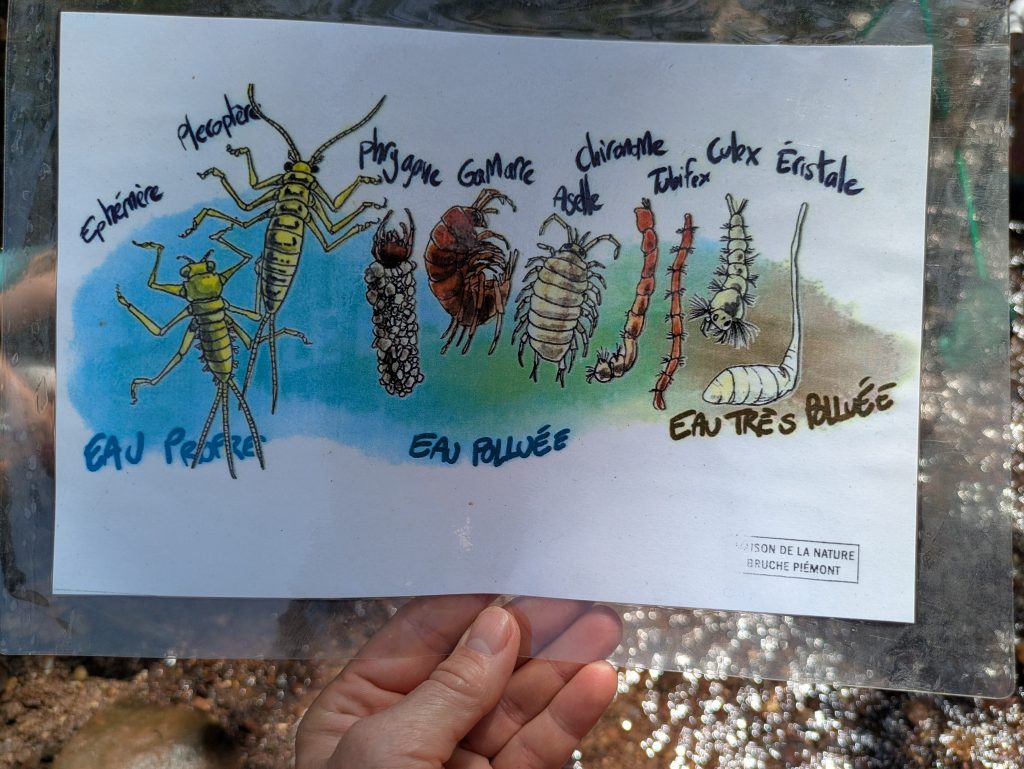 Ephémère
Plécoptère
Phrygane
GaMarre
Aselle
Chironome
Tubifex
Culex
Éristale
EAU PROPRE
EAU POLLUÉE
EAU TRÈS POLLUÉE
MAISON DE LA NATURE
BRUCHE PIÉMONT